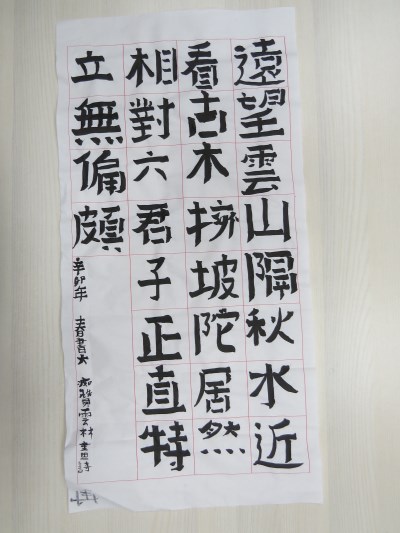 遠望雲山隔秋水近
看古木擁坡陀居然
相對六君子正直特
立無偏頗
辛卯年 春書大 雲林畫詩